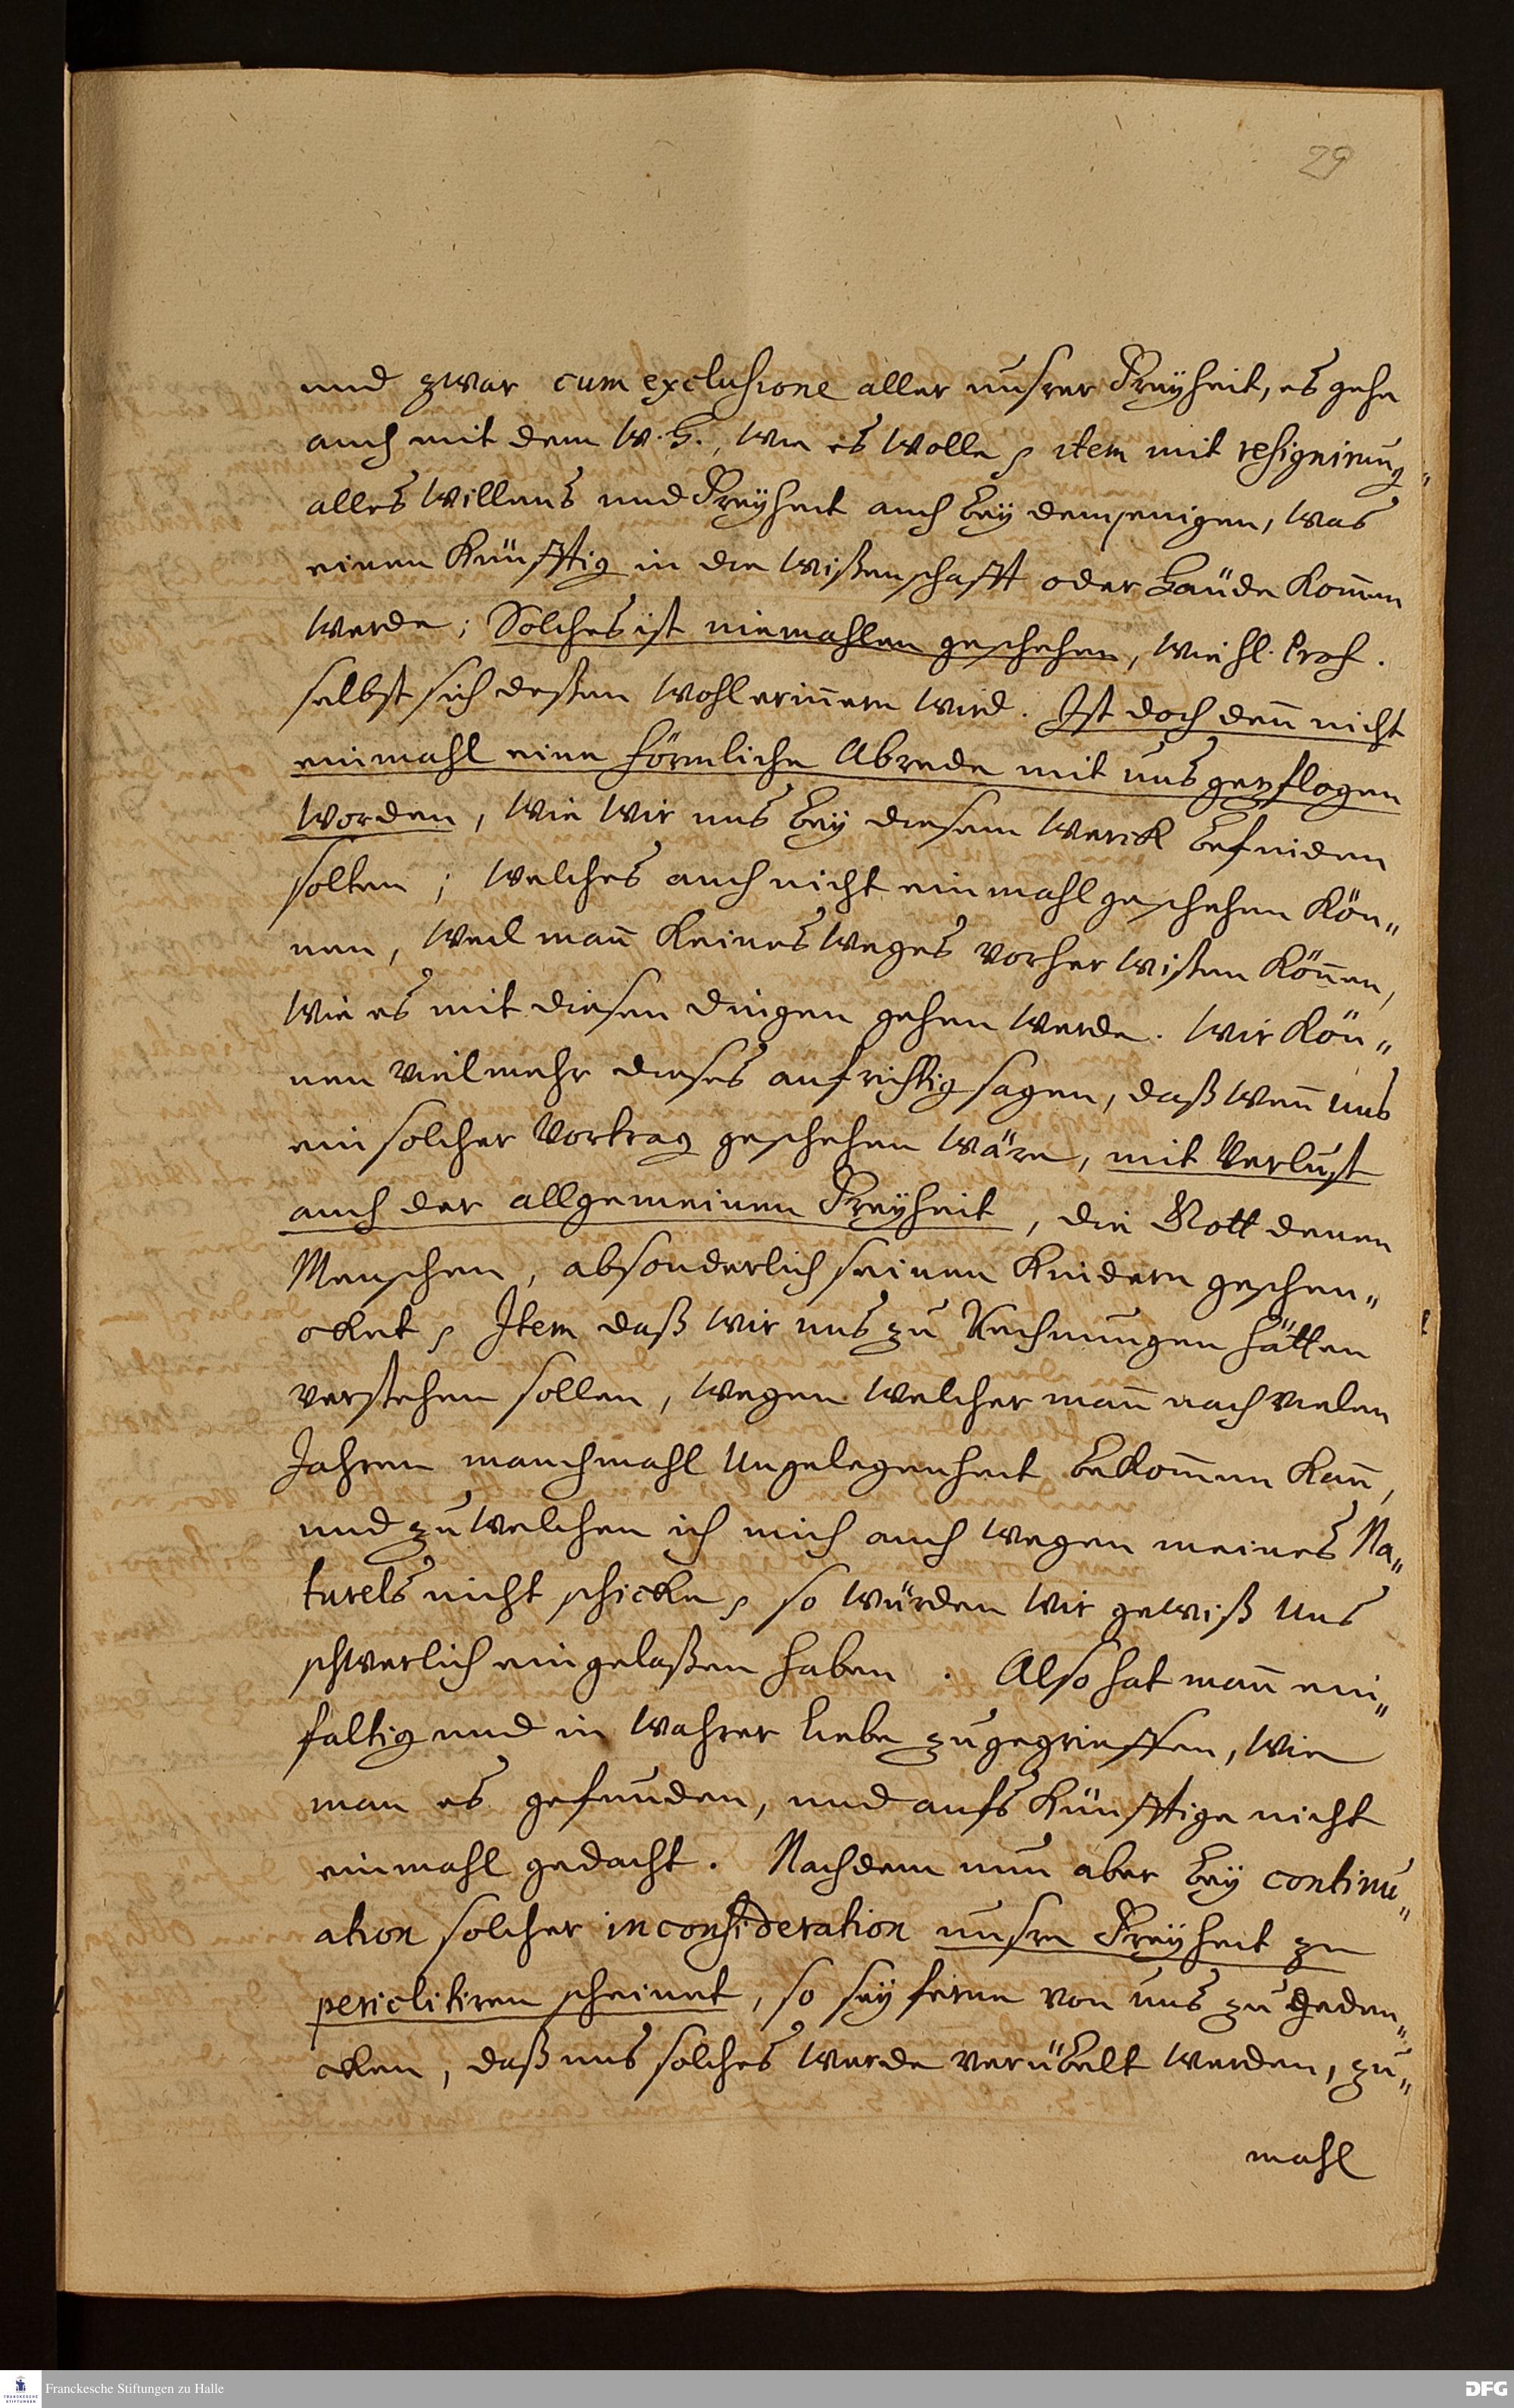 29
und zwar cum exclusione aller unsrer Freyheit, es gehe
auch mit dem W. H., wie es wolle, item mit resignirung
alles Willens und Freyheit auch bey demjenigen, was
einem künfftig in die Wißenschafft oder Hände kom̄en
werde; Solches ist niemahlen geschehen, wie H. Prof.
selbst sich deßen wohl erin̄ern wird. Ist doch den̄ nicht
einmahl eine förmliche Abrede mit uns gepflogen
worden, wie wir uns bey diesem Werck befinden
solten; welches auch nicht einmahl geschehen kön„
nen, weil man̄ keines weges vorher wißen kön̄en,
wie es mit diesen dingen gehen werde. Wir kön„
nen vielmehr dieses aufrichtig sagen, daß wen̄ uns
ein solcher Vortrag geschehen wäre, mit Verlust
auch der allgemeinen Freyheit, die Gott denen
Menschen, absonderlich seinen Kindern geschen„
cket, Item daß wir uns zu Rechnungen hätten
verstehen sollen, wegen welcher man̄ nach vielen
Jahren manchmahl Ungelegenheit bekom̄en kan̄,
und zu welchen ich mich auch wegen meines Na„
turels nicht schicke, so würden wir gewiß uns
schwerlich eingelaßen haben. Also hat man̄ ein„
faltig und in wahrer Liebe zugegrieffen, wie
man es gefunden, und aufs künfftige nicht
einmahl gedacht. Nachdem nun aber bey continu„
ation solcher inconsideration unsre Freyheit zu
periclitiren scheinet, so sey ferne von uns zu geden„
cken, daß uns solches werde verübelt werden, zu„
mahl
Franckesche Stiftungen zu Halle
DFG